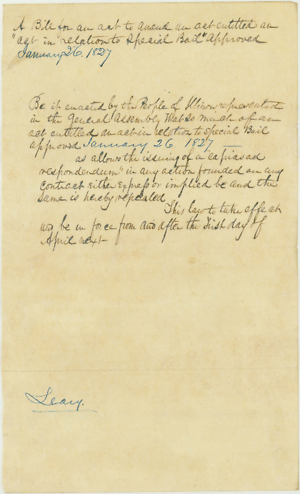 A Bill for an act to amend an act entitled an
"act in relation to Special Bail" Approved
January 26. 1827
Be it enacted by the People of Illinois represented
in the General Assembly That so much of an
act entitled an act in relation to Special Bail
approved January 26 1827
as allows the issuing of a "capias ad
respondendum" in any action founded on any
contract either express or implied be and the
same is hereby repealed
This law to take effect
and be in force from and after the First day of
April next
Leary.